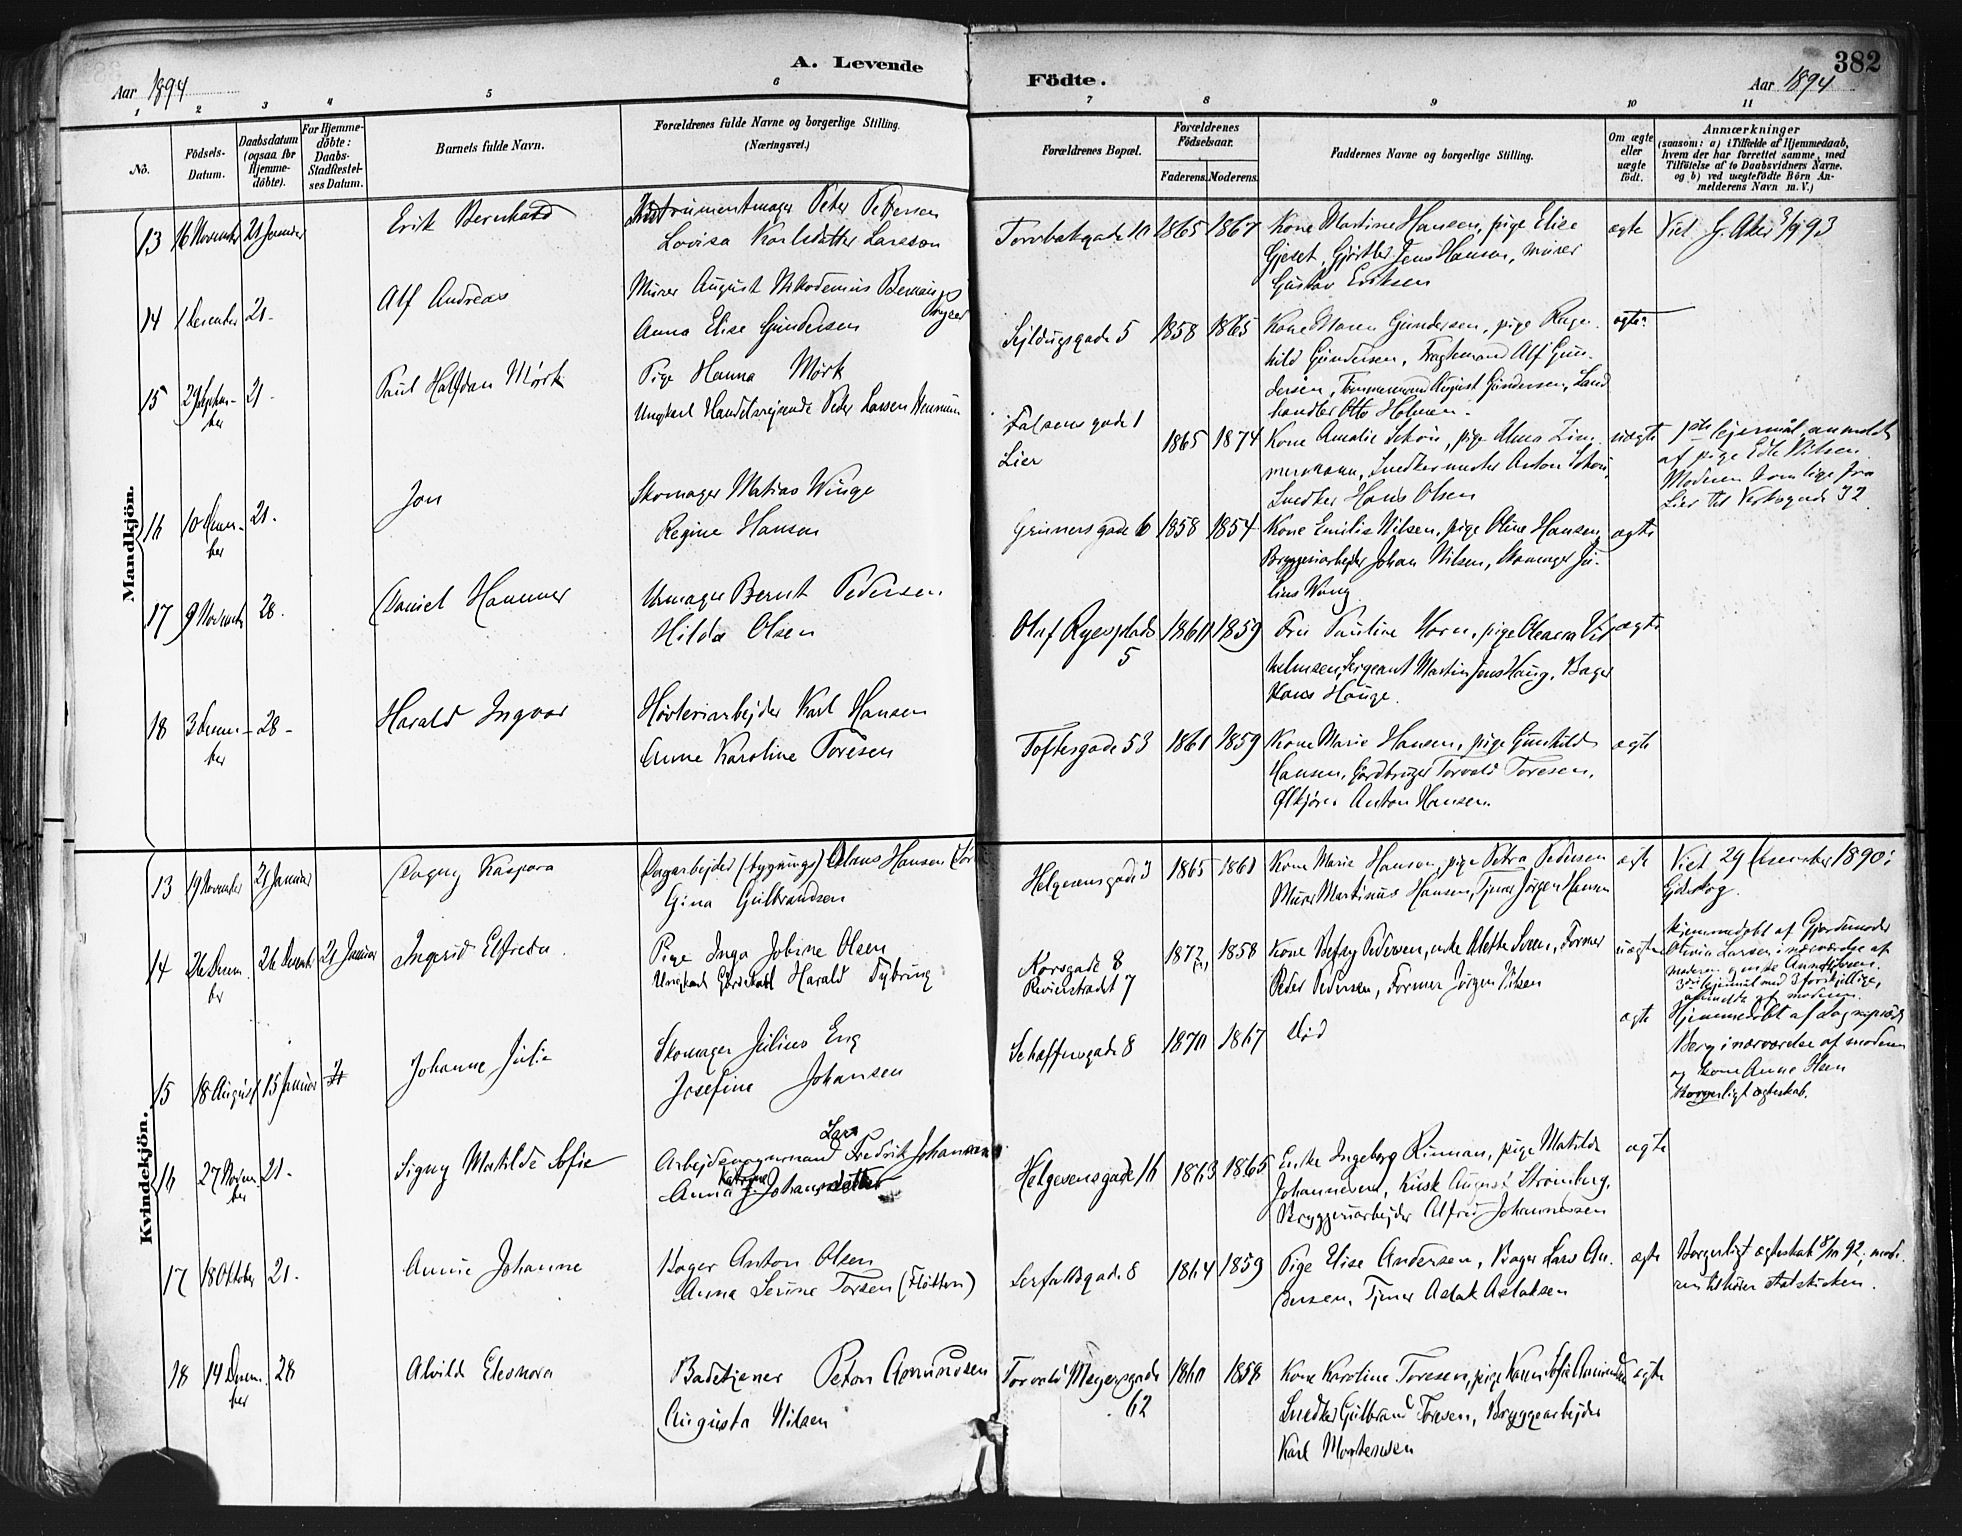 A. Levende Födte.
382
Aar 1894
Aar 1894
1 2 3 4 5 6 7 8 9 10 11
No.
Födsels-Datum.
Daabsdatum (ogsaa for Hjemme-döbte).
For Hjemme-döbte: Daabs-Stadfæstel-ses Datum.
Barnets fulde Navn.
Forældrenes fulde Navne og borgerlige Stilling.
(Næringsvei.)
Forældrenes Bopæl.
Forældrenes Födselsaar.
Faderens. Moderens.
Faddernes Navne og borgerlige Stilling.
Om ægte eller uægte födt.
Anmærkninger
(saasom: a) i Tilfælde af Hjemmedaab,
hvem der har forrettet samme, med
Tilföielse af to Daabsvidners Navne.
og b) ved uægtefödte Börn An-
melderens Navn m. V.)
Mandkjön.
13 16 November 21 Januar Erik Bernhard Instrumentmager Peter Pettersen
Lovisa Karlsdatter Larsson
1865 1867 Kone Martine Hansen, pige Elise
Gjørtler Jens Hansen, murer
Gustav Eriksen
ægte Viet G. Aker 93
14 1 December 21 - Alf Andreas Murer August Nikodemus
Anna Elise Gundersen
5 1858 1865 Kone Maren Gundersen, pige Ragn-
hild Gundersen, Alf Gun-
dersen, Tømmermand August Gundersen, Land
handler Otto Holmen.
ægte
15 21 - Paul Halfdan Mørk Pige Hanna Mørk
Ungkarl Handelsrejsende Peder Larsen
Falsensgade 1
Lier
1865 1874 Kone Amalie Schou, pige Alma Zim-
mermann, Snedkermester Anton Schou,
Snedker Hans Olsen
uægte 1ste lejermål, anmeldt
af pige Nilsen.
Moderen kom lige fra
Lier til 32
16 10 Decem-
ber 21 - Jon Skomager Matias Winge
Regine Hansen
Grünersgade 6 1858 1854 Kone Emilie Nilsen, pige Oline Hansen,
Bryggeriarbejder Johan Nilsen, Skomager Ju-
lius Wang
ægte
17 9 November 28 - Daniel Hammer Urmager Bernt Pedersen
Hilda Olsen
Olaf Ryesplads
5 1860 1859 Fru Pauline Horn, pige Oleana Vil-
helmsen, Sergeant Martin Jens Haug, Bager
Hans Hauge.
ægte
18 3 Decem-
ber 28 - Harald Ingvar Høvleriarbejder Karl Hansen
Anne Karoline Toresen
Toftesgade 53 1861 1859 Kone Marie Hansen, pige Gunhild
Hansen, Gårdbruger Torvald Toresen,
Ølkjører Anton Hansen.
ægte
Kvindekjön.
13 19 November 21 Januar Dagny Kaspara Dagarbejder (bygnings) Hansen
Gina Gulbrandsen
Helgesensgade 3 1865 1861 Kone Marie Hansen, pige Petra Pedersen
Murer Martinus Hansen, Tjener Jørgen Hansen
ægte Viet 29 December 1890 i
14 26 Decem-
ber 26 Decemb. 21 Januar Ingrid Elfreda Pige Inga Jobine Olsen
Ungkarl Gårdskarl Harald Nybring
Korsgade 8
Revierstrædet 7
1872 1858 Kone Betsy Pedersen, enke Mette Svensen, Former
Peder Pedersen, Former Jørgen Nilsen
uægte Hjemmedøbt af Gjordemoder
Olivia Larsen i nærværelse af
moderen og enke
3die lejermål med 3 forskjellige,
anmeldt af moderen.
15 18 August 15 Januar Johanne Julie Skomager Julius Eng
Josefine Johansen
Schæffersgade 8 1870 1867 død
ægte Hjemmedøbt af Sogneprest
Berg i nærværelse af moderen
og kone Anne Olsen
Borgerligt ægteskab.
16 27 Novem-
ber 21 - Signy Matilde Sofie Arbejdsvognmand Lars Fredrik Johansen
Anna Katrine Johansdatter
Helgesensgade 16 1863 1865 Enke Ingeborg Rinnan, pige Matilde
Johannesen, Kusk August Strömberg,
Bryggeriarbejder Alfred Johannessen
ægte
17 18 Oktober 21 - Annie Johanne Bager Anton Olsen
Anna Serine Torsen (Fløtten)
8 1864 1859 Pige Elise Andersen, Bager Lars An-
dersen, Tjener Aslak Aslaksen
ægte Borgerligt ægteskab 92, mode-
ren tilhører statskirken.
18 19 Decem-
ber 28 Alvilde Eleonora Badetjener Peter Amundsen
Augusta Nilsen
Torvald Meyersgade
62 1860 1858 Kone Karoline Toresen, pige Karen Sofie Amundsen
Snedker Gulbrand Toresen, Bryggearbejder
Karl Mortensen
ægte